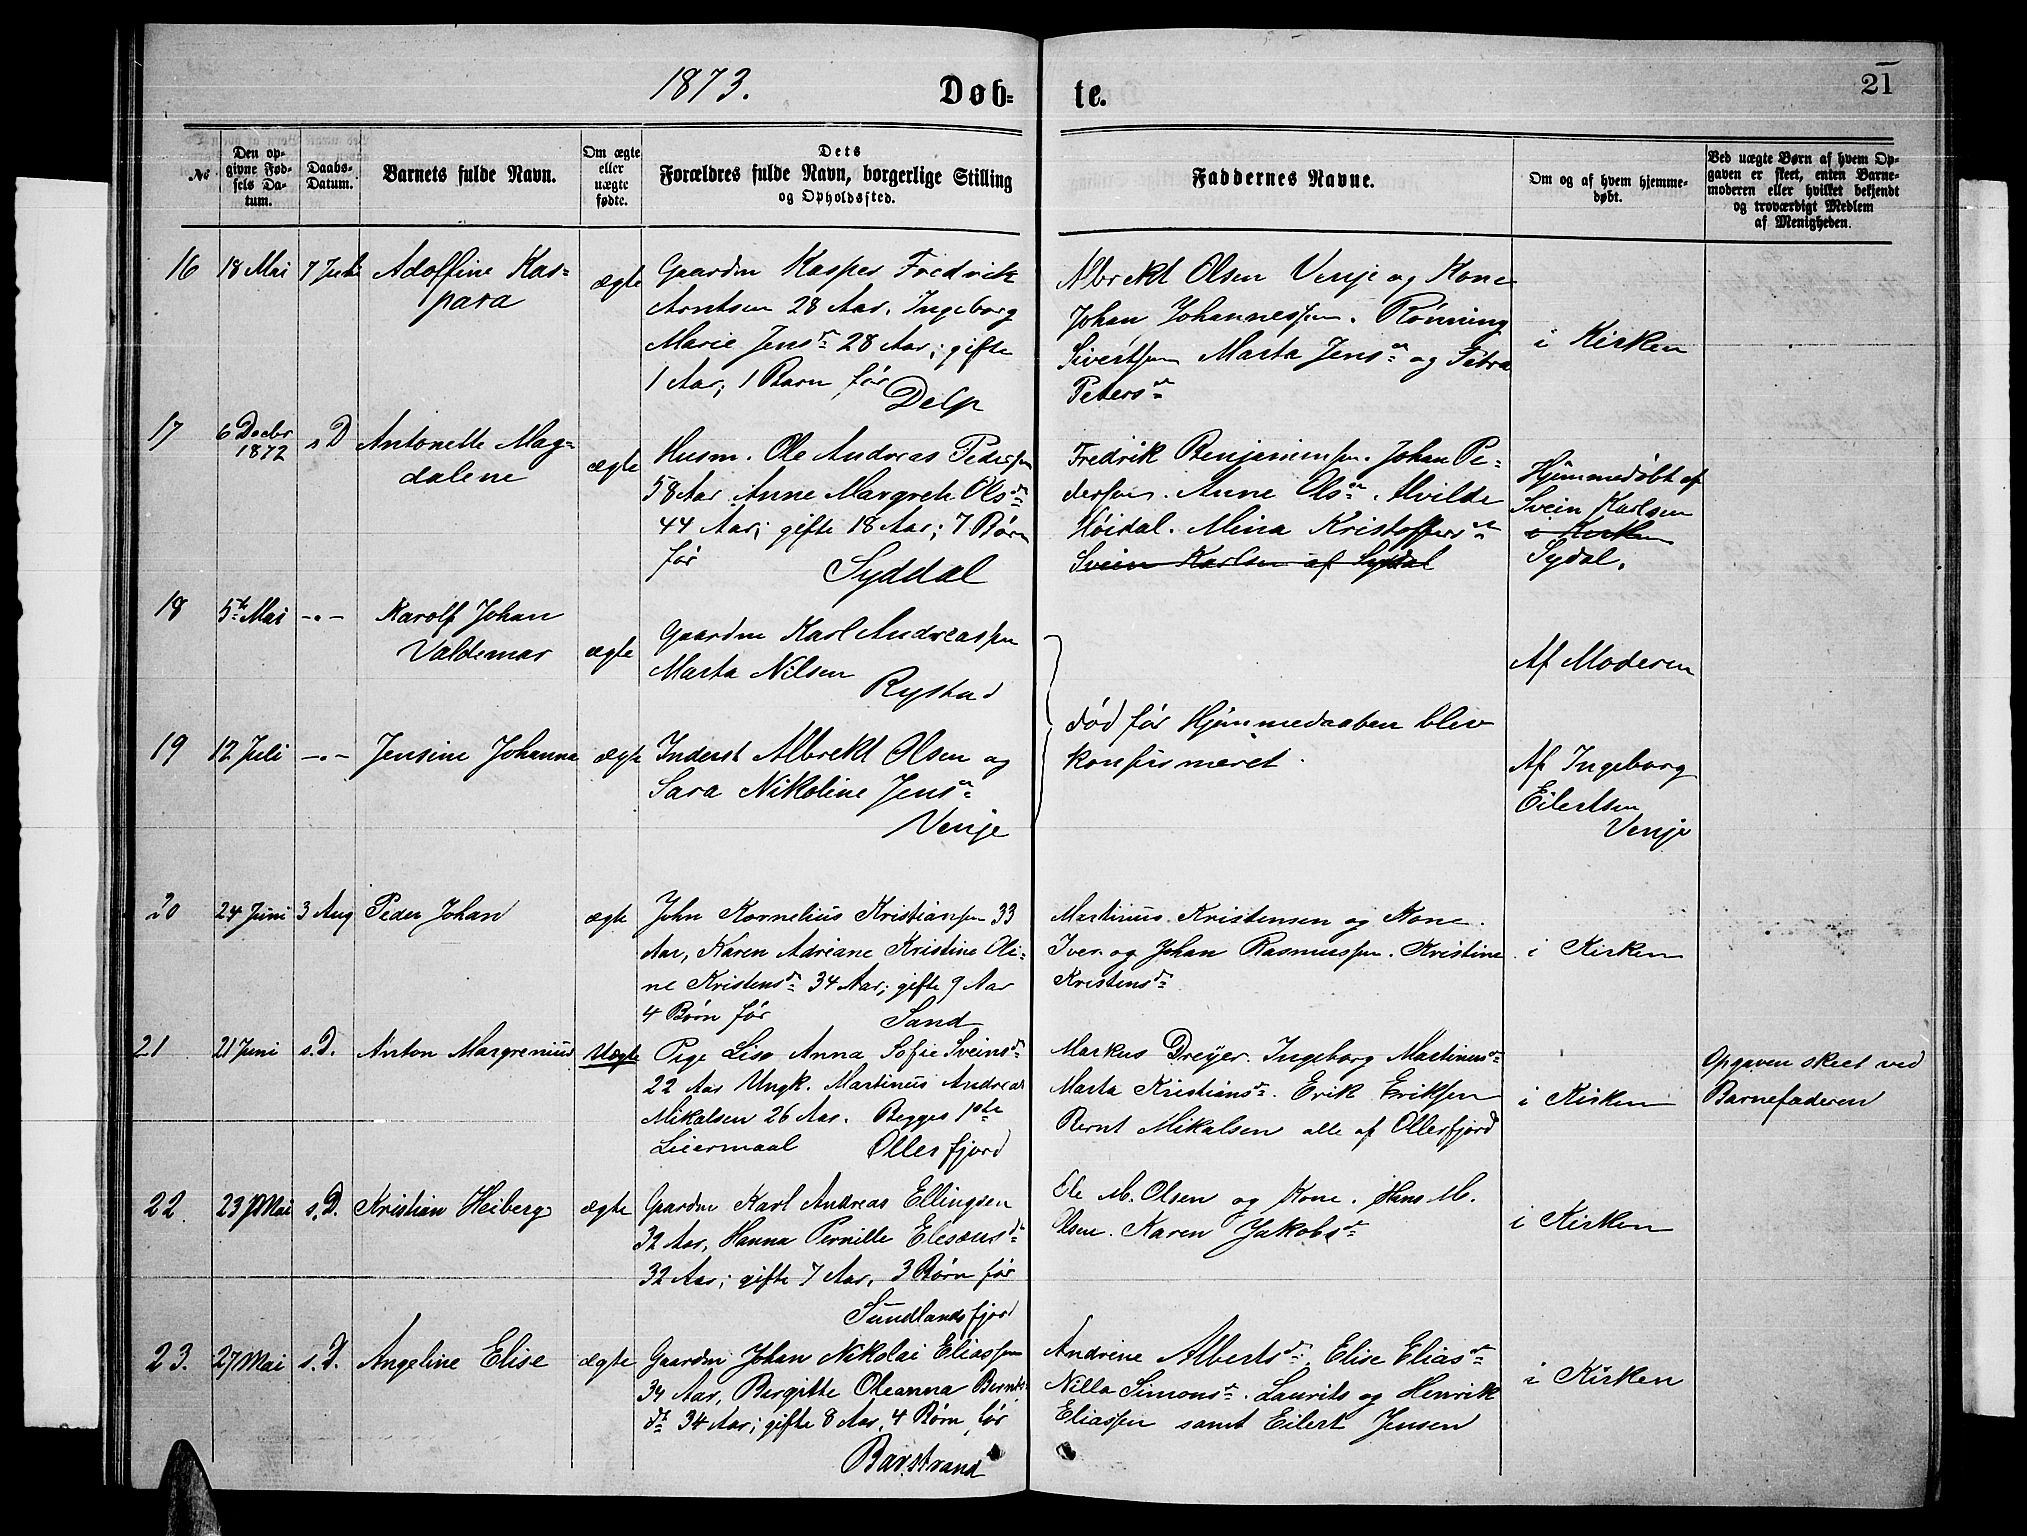 1873. Døb- te. 21
№
Den op-
givne Fød-
sels Da-
tum.
Daabs-
Datum.
Barnets fulde Navn.
Om ægte
eller
uægte
fødte.
Dets
Forældres fulde Navn, borgerlige Stilling
og Opholdssted.
Faddernes Navne.
Om og af hvem hjemme-
døbt.
Ved uægte Børn af hvem Op-
gaven er skeet, enten Barne-
moderen eller hvilket bekjendt
og troværdigt Medlem
af Menigheden.
16 18 Mai 7 Juli Adolfine Kas-
para
ægte
Gaardm Kasper Fredrik
Arntsen 28 Aar, Ingeborg
Marie Jensdr 28 Aar; gifte
1 Aar; 1 Barn før
Delp
Albrekt Olsen Venje og Kone
Johan Johannessen. Rønning
Sivertsen Marta Jensdr og Petra
Petersdr
i Kirken
17 6 Decbr
1872
s D Antonette Mag-
dalene
ægte
Husm. Ole Andreas Pedersen
58 Aar Anne Margrete Olsdr
44 Aar; gifte 18 Aar; 7 Børn
før
Syddal
Fredrik Benjaminsen. Johan Pe-
dersen. Anne Olsdr. Alvilde
Høidal. Mina Kristoffersdr
Svein Karlsen af Syddal
Hjemmedøbt af
Svein Karlsen
i Kirken
Sydal.
18 5te Mai -"- Karolf Johan
Valdemar
ægte
Gaardm Karl Andreassen
Marta Nilsen
Rystad
Af Moderen
død før Hjemmedaaben blev
konfirmeret.
19 12 Juli -"- Jensine Johanna ægte
Inderst Albrekt Olsen og
Sara Nikoline Jensdr
Venje
Af Ingeborg
Eilertsen
Venje
20 24 Juni 3 Aug Peder Johan ægte
John Kornelius Kristiansen 33
Aar, Karen Adriane Kristine Oli-
ne Kristensdr 34 Aar; gifte 9 Aar
4 Børn før
Sand
Martinus Kristensen og Kone.
Iver og Johan Rasmussen. Kristine
Kristensdr
i Kirken
21 21 Juni s.D. Anton Margrenius Uægte
Pige Lise Anna Sofie Sveinsdr
22 Aar Ungk. Martinus Andreas
Mikalsen 26 Aar. Begges 1ste
Leiermaal
Ollersfjord
Markus Dreyer. Ingeborg Martinusdr
Marta Kristiansdr. Erik Eriksen
Bernt Mikalsen alle af Ollersfjord
i Kirken
Opgaven skeet ved
Barnefaderen
22 23 Mai s.D. Kristian Heiberg ægte
Gaardm Karl Andreas Ellingsen
32 Aar, Hanna Pernille Elesæusdr
32 Aar; gifte 7 Aar, 3 Børn før
Sundlandsfjord
Ole M. Olsen og Kone. Hans M.
Olsen. Karen Jakobsdr
i Kirken
23. 27 Mai s.D. Angeline Elise ægte
Gaardm Johan Nikolai Eliassen
34 Aar, Birgitte Oleanna Bernts-
dr 34 Aar; gifte 8 Aar, 4 Børn før
Barstrand
Andrine Albertsdr. Elise Eliasdr
Nilla Simonsdr. Laurits og Henrik
Eliassen samt Eilert Jensen
i Kirken